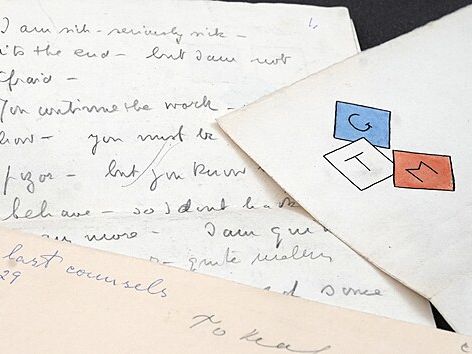 1,
I am sick - seriously sick -
its the end - but I am not
afraid -
You continue the work -
how - you must be
but you know
behave - so I dont
more - I am
quite
since
G
T
M
last counsels
29
To